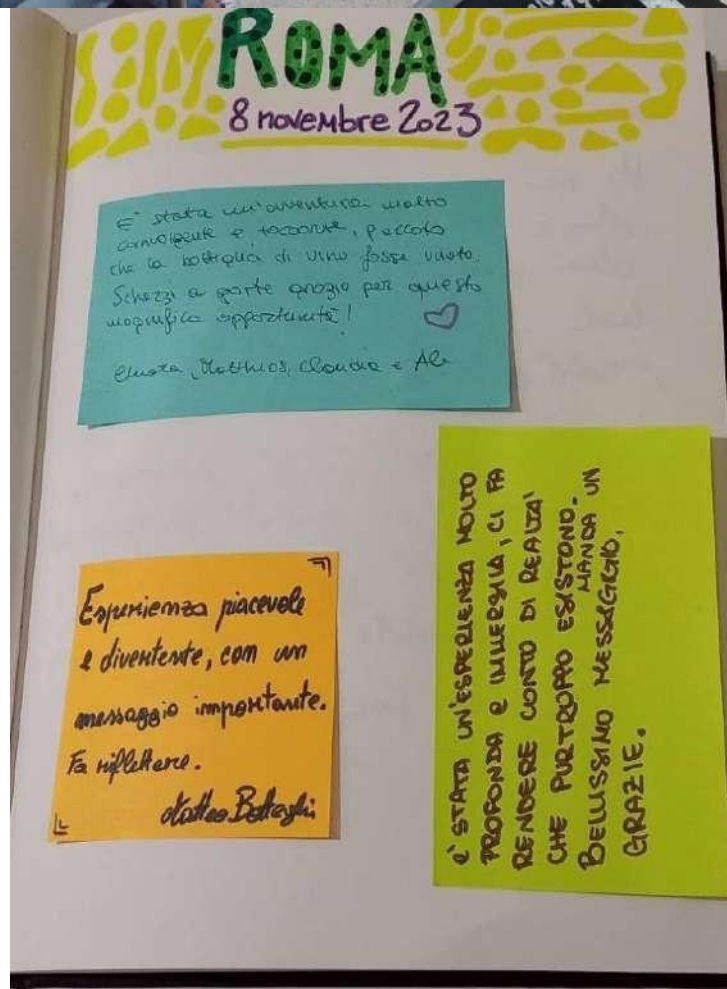 ROMA
8 novembre 2023
E' stata un'avventura molto
coinvolgente e toccante, peccato
che la bottiglia di vino fosse vuota.
Scherzi a parte grazie per questa
magnifica opportunità!
Claudia e Ale
Esperienza piacevole
e divertente, con un
messaggio importante.
Fa riflettere.
Matteo
è STATA UN'ESPERIENZA MOLTO
PROFONDA E IMMERSIVA, CI FA
RENDERE CONTO DI REALTA'
CHE PURTROPPO ESISTONO.
MANDA UN
BELLISSIMO MESSAGGIO,
GRAZIE.